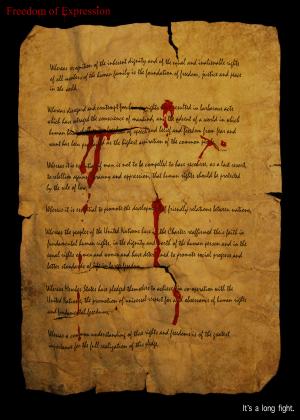 Freedom of Expression
Whereas recognition of the inherent dignity and of the equal and inalienable rights
of all members of the human family is the foundation of freedom, justice and peace
in the world.
Whereas disregard and contempt for human rights have resulted in barbarous acts
which have outraged the conscience of mankind, and the advent of a world in which
human beings of speech and belief and freedom from fear and
want has been as the highest aspiration of the common
Whereas it is essential, if man is not to be compelled to have recourse, as a last resort,
to rebellion against tyranny and oppression, that human rights should be protected
by the rule of law,
Whereas it is essential to promote the development of friendly relations between nations,
Whereas the peoples of the United Nations have in the Charter reaffirmed their faith in
fundamental human rights, in the dignity and worth of the human person and in the
equal rights of men and women and have determined to promote social progress and
better standards of life in larger freedom,
Whereas Member States have pledged themselves to achieve, in co-operation with the
United Nations, the promotion of universal respect for and observance of human rights
and fundamental freedoms,
Whereas a common understanding of these rights and freedoms is of the greatest
importance for the full realization of this pledge,
It's a long fight.